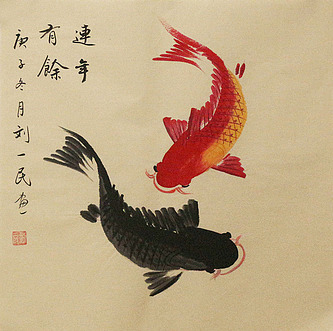 連年
有餘
庚子冬月刘一民画